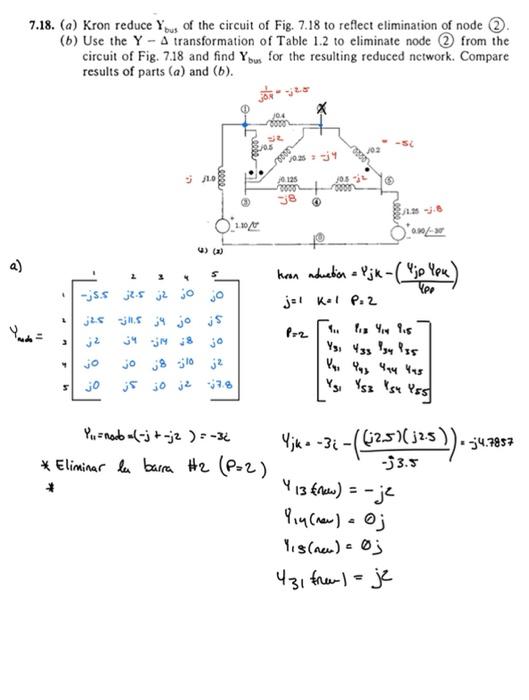 7.18. (a) Kron reduce Ybus of the circuit of Fig. 7.18 to reflect elimination of node ②.
(b) Use the Y − Δ transformation of Table 1.2 to eliminate node ② from the
circuit of Fig. 7.18 and find Ybus for the resulting reduced network. Compare
results of parts (a) and (b).
1/j0.4 = -j2.5
①
j0.4
-j2
j0.5
j0.25 = -j4
j0.2
= -5i
-j
j1.0
j0.125
j0.5 -j2
⑤
③
-j8
④
j1.25 -j.8
1.10/0°
0.90/-30°
⓪
a)
1 2 3 4 5
1 -j5.5 j2.5 j2 j0 j0
2 j2.5 -j11.5 j4 j0 j5
3 j2 j4 -j14 j8 j0
4 j0 j0 j8 -j10 j2
5 j0 j5 j0 j2 -j7.8
Kron reduction = Yjk - (Yjp Ypk / Ypp)
j=1 K=1 P=2
P=2
Y33 Y34 Y35
Y41 Y43 Y44 Y45
Y53 Y54 Y55
Y11=nodo=(-j+-j2)=-3i
* Eliminar la barra #2 (P=2)
*
Yjk = -3i - ((j2.5)(j2.5) / -j3.5) = -j4.7857
Y13 (new) = -j2
Y14 (new) = 0j
Y15 (new) = 0j
Y31 (new) = j2